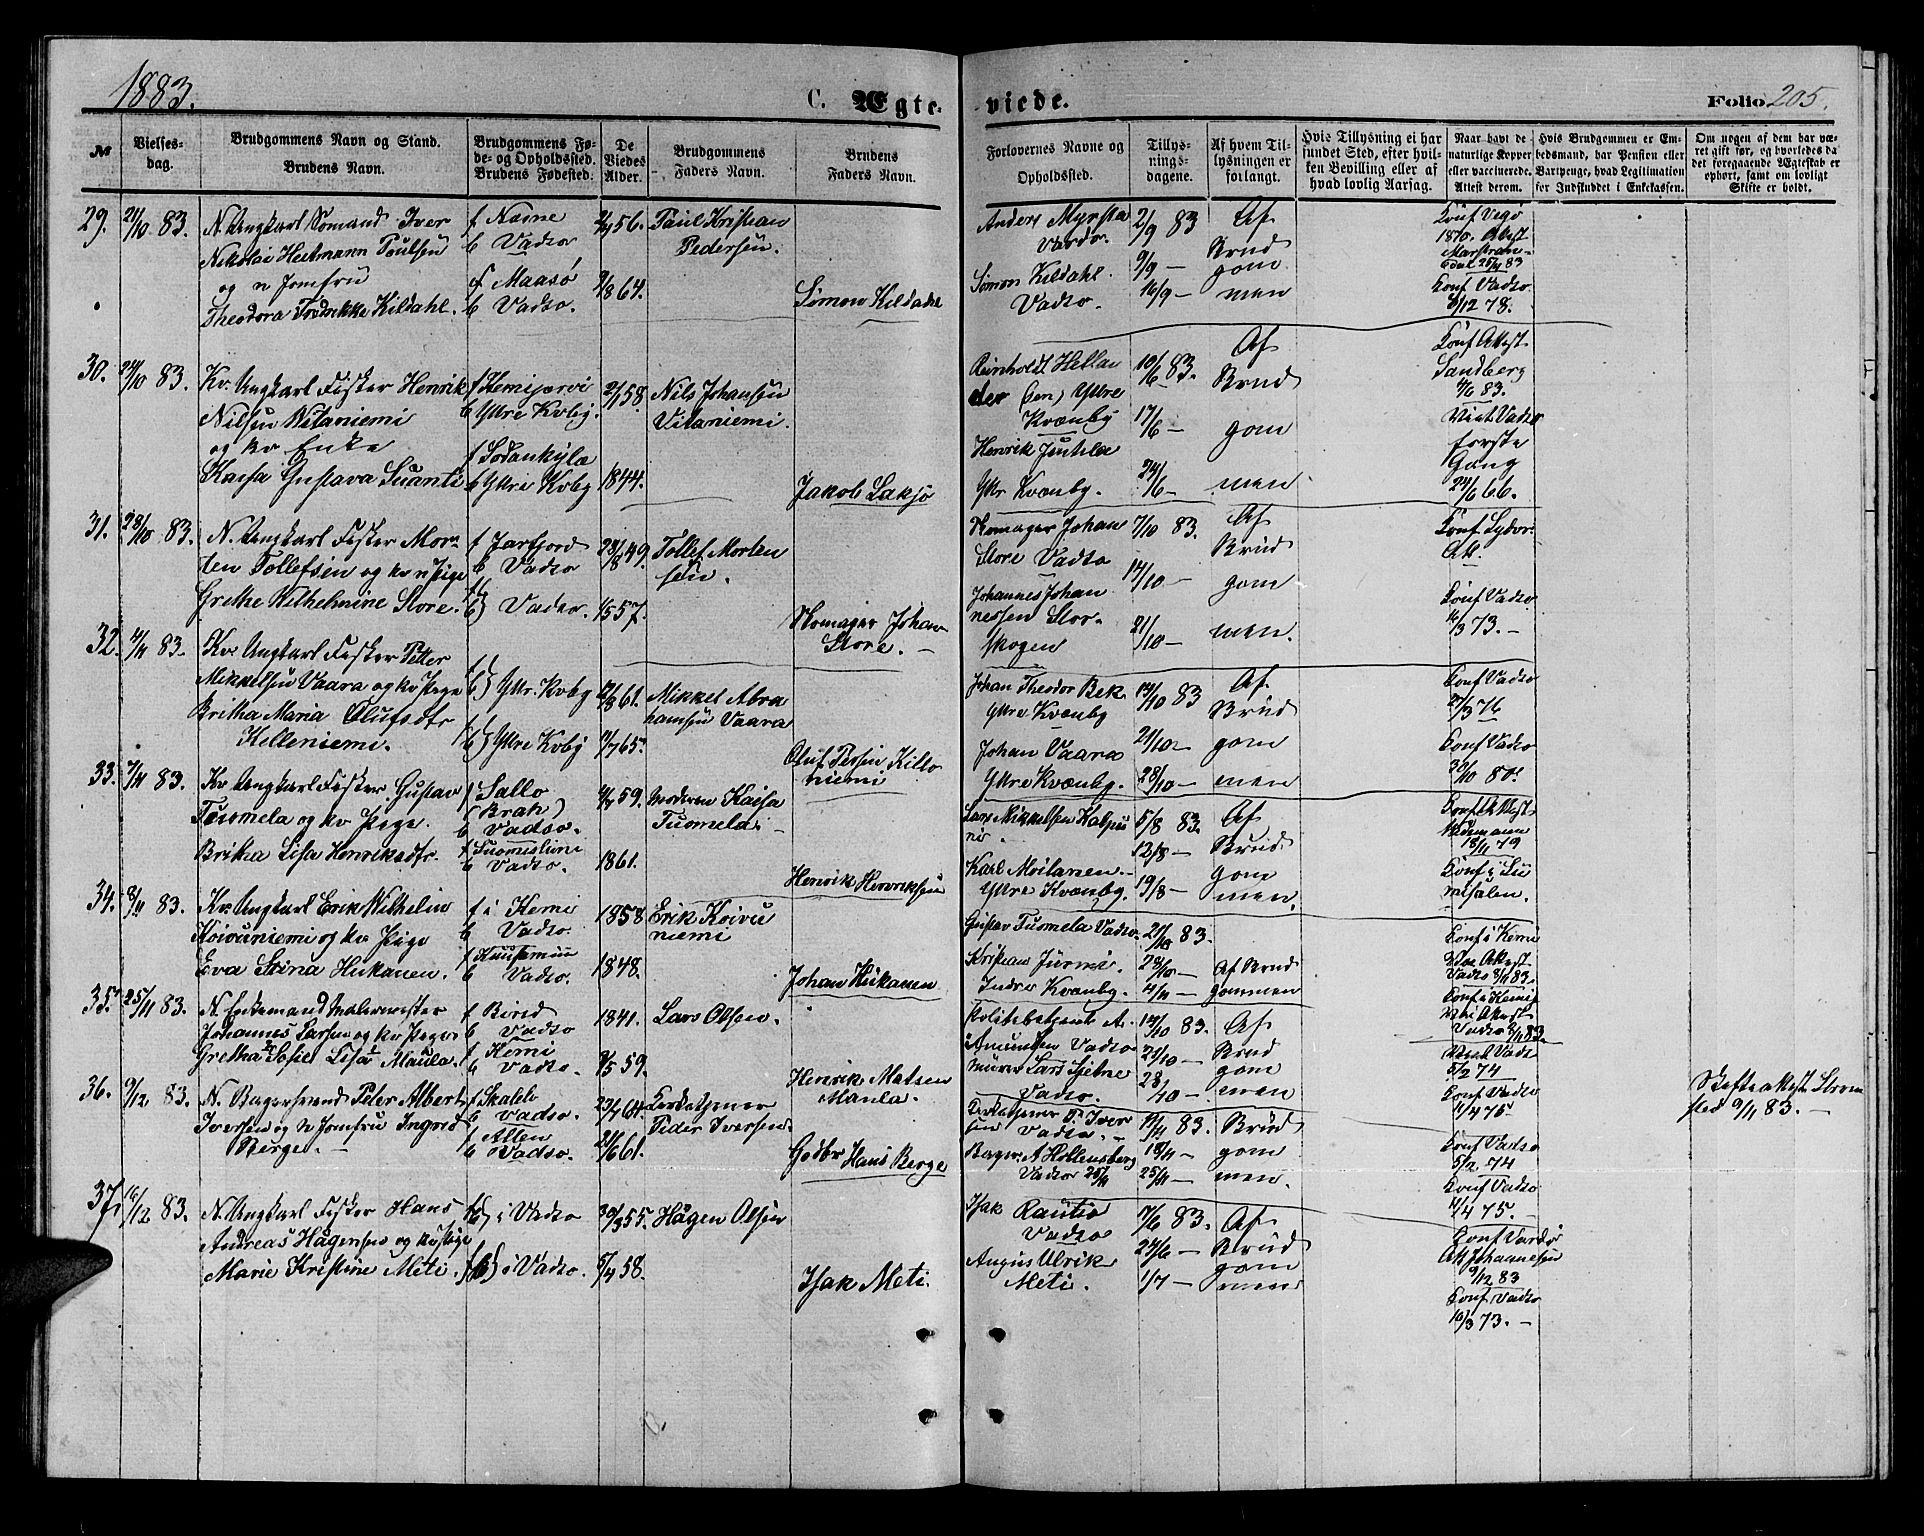 1883.
C. Ægte-
viede.
Folio 205.
№
Vielses-
dag.
Brudgommens Navn og Stand.
Brudens Navn.
Brudgommens Fø-
de- og Opholdssted.
Brudens Fødested.
De
Viedes
Alder.
Brudgommens
Faders Navn.
Brudens
Faders Navn.
Forlovernes Navne og
Opholdssted.
Tillys-
nings-
dagene.
Af hvem Til-
lysningen er
forlangt.
Hvis Tillysning ei har
fundet Sted, efter hvil-
ken Bevilling eller af
hvad lovlig Aarsag.
Naar havt de
naturlige Kopper
eller vaccinerede.
Attest derom.
Hvis Brudgommen er Em-
bedsmand, har Pension eller
Vartpenge, hvad Legitimation
for Indskuddet i Enkekassen.
Om nogen af dem har væ-
ret gift før, og hvorledes da
det foregaaende Ægteskab er
ophørt, samt om lovligt
Skifte er holdt.
29. 21/10 83.
N. Ungkarl Sømand Iver
Nikolai Heitmann Poulsen
og n Jomfru
Theodora Fredrikke Kildahl.
f Næsne
b Vadsø
f Maasø
b Vadsø.
56.
/8 64.
Paul Kristian
Pedersen.
Simon Kildahl
Anders Myrsta
Vardø.
Simon Kildahl.
Vadsø.
2/9 83
9/9 —
16/9 —
Af
Brud
gom
men
Conf Vegø
1870. Attest
25/4 83
Conf Vadsø
/12 78.
30. 24/10 83.
Kv. Ungkarl Fisker Henrik
Nilsen Witaniemi
og kv Enke
Kaisa Gustava Suanti
f Kemijærvi
b Yttre Kvby.
f Sodankylæ
b Yttre Kvby
2/1 58.
1844.
Nils Johansen
Vitaniemi.
Jakob Laksjo
Reinholdt Hellan
der (sen) Yttre
Kvænby
Henrik Juntila
Yttr Kvænby.
10/6 83.
17/6 —
24/6 —
Af
Brud
gom
men
Conf Attest
Sandberg
/6 83.
Viet Vadsø
første
Gang
24/6 66.
31. 28/10 83.
N. Ungkarl Fisker Mor-
ten Tollefsen og kv Pige
Grethe Wilhelmine Store.
f Jarfjord
b Vadsø
f
b } Vadsø.
28/8 49.
/5 57.
Tollef Morten
sen.
Skomager Johan
Store. —
Skomager Johan
Store Vadsø
Johannes Johan
nessen Stor-
skogen
7/10 83.
14/10 —
21/10 —
Af
Brud
gom
men.
Conf Sydvr.
Att.
Conf Vadsø
/3 73. —
32. 4/11 83.
Kv. Ungkarl Fisker Petter
Mikkelsen Vaara og kv Pige
Britha Maria Olufsdtr
Killeniemi.
f
b } Yttr. Kvby
f
b } Yttre Kvby
/8 61.
/7 65.
Mikkel Abra
hamsen Vaara
Oluf Persen Kille
niemi
Johan Theodor Bek
Yttre Kvænby
Johan Vaara
Yttre Kvænby.
14/10 83
21/10 —
28/10 —
Af
Brud
gom
men
Conf Vadsø
27/3 76
Conf Vadsø
30/10 80.
33. 7/11 83.
Kv. Ungkarl Fisker Gustav
Tuomela og kv Pige.
Britha Lisa Henriksdtr.
f Sallo
b Vadsø.
b Vadsø.
59.
1861.
Moderen Kaisa
Tuomela
Henrik Henriksen
Lars Mikkelsen
Karl Moilanen
Yttre Kvænby.
5/8 83.
12/8 —
19/8 —
Af
Brud
gom
men.
Conf Attest
18/11 79
Conf i Su
misalen.
34. 8/11 83.
Kv. Ungkarl Erik Wilhelm
Koivuniemi og kv Pige
Eva Stina Hukanen.
f i Kemi
b Vadsø.
b Vadsø.
1858
1848.
Erik Koivu
niemi
Johan Hukanen
Gustav Tuomela Vadsø.
Kristian
Indre Kvænby.
21/10 83.
28/10 —
4/11 —
Af Brud
gommen
Conf i Kemi
Attest
Vadsø 8/11 83.
Conf i Kemi
Attest
Vadsø 8/11 83.
35. 25/11 83.
N. Enkemand Malermester
Johannes Larsen og kv Pige
Gretha Sofie Lisa Maula.
f Birid
b Vadsø
f Kemi
b Vadsø.
1841.
/5 59.
Lars Olsen.
Henrik Matsen
Maula.
Politibetjent A.
Amundsen Vadsø
Murer Lars
Vadsø.
14/10 83.
21/10 —
28/10 —
Af
Brud
gom
men
Viet Vadsø
5/2 74
Conf Vadsø
4/4 75.
Skifteattest Strøm
sted 9/11 83. —
36. 9/12 83.
N. Bagersvend Peter Albert
Iversen og n Jomfru Ingred
Berge. —
b Vadsø.
f Alten
b Vadsø.
23/7 64.
21/6 61.
Kirketjener
Peder Iversen
Gdbr Hans Berge
Kirketjener P. Iver
sen Vadsø. —
Bager A Hollensberg
Vadsø
11/11 83.
18/11 —
25/11 —
Brud
gom
men.
Conf Vadsø
5/2 74
Conf Vadsø
4/4 75. —
37. 16/12 83.
N. Ungkarl Fisker Hans
Andreas Hagensen og kv Pige
Marie Kristine Meti.
fb } i Vadsø
fb } i Vadsø.
30/3 55.
5/4 58.
Hagen Olsen
Isak Meti.
Isak Rautio
Vadsø
August Ulrik
Meti.
/6 83.
24/6 —
1/7 —
Af
Brud
gom
men
Conf Vardø
Att Johannesen
9/12 83
Conf Vadsø
16/3 73. —